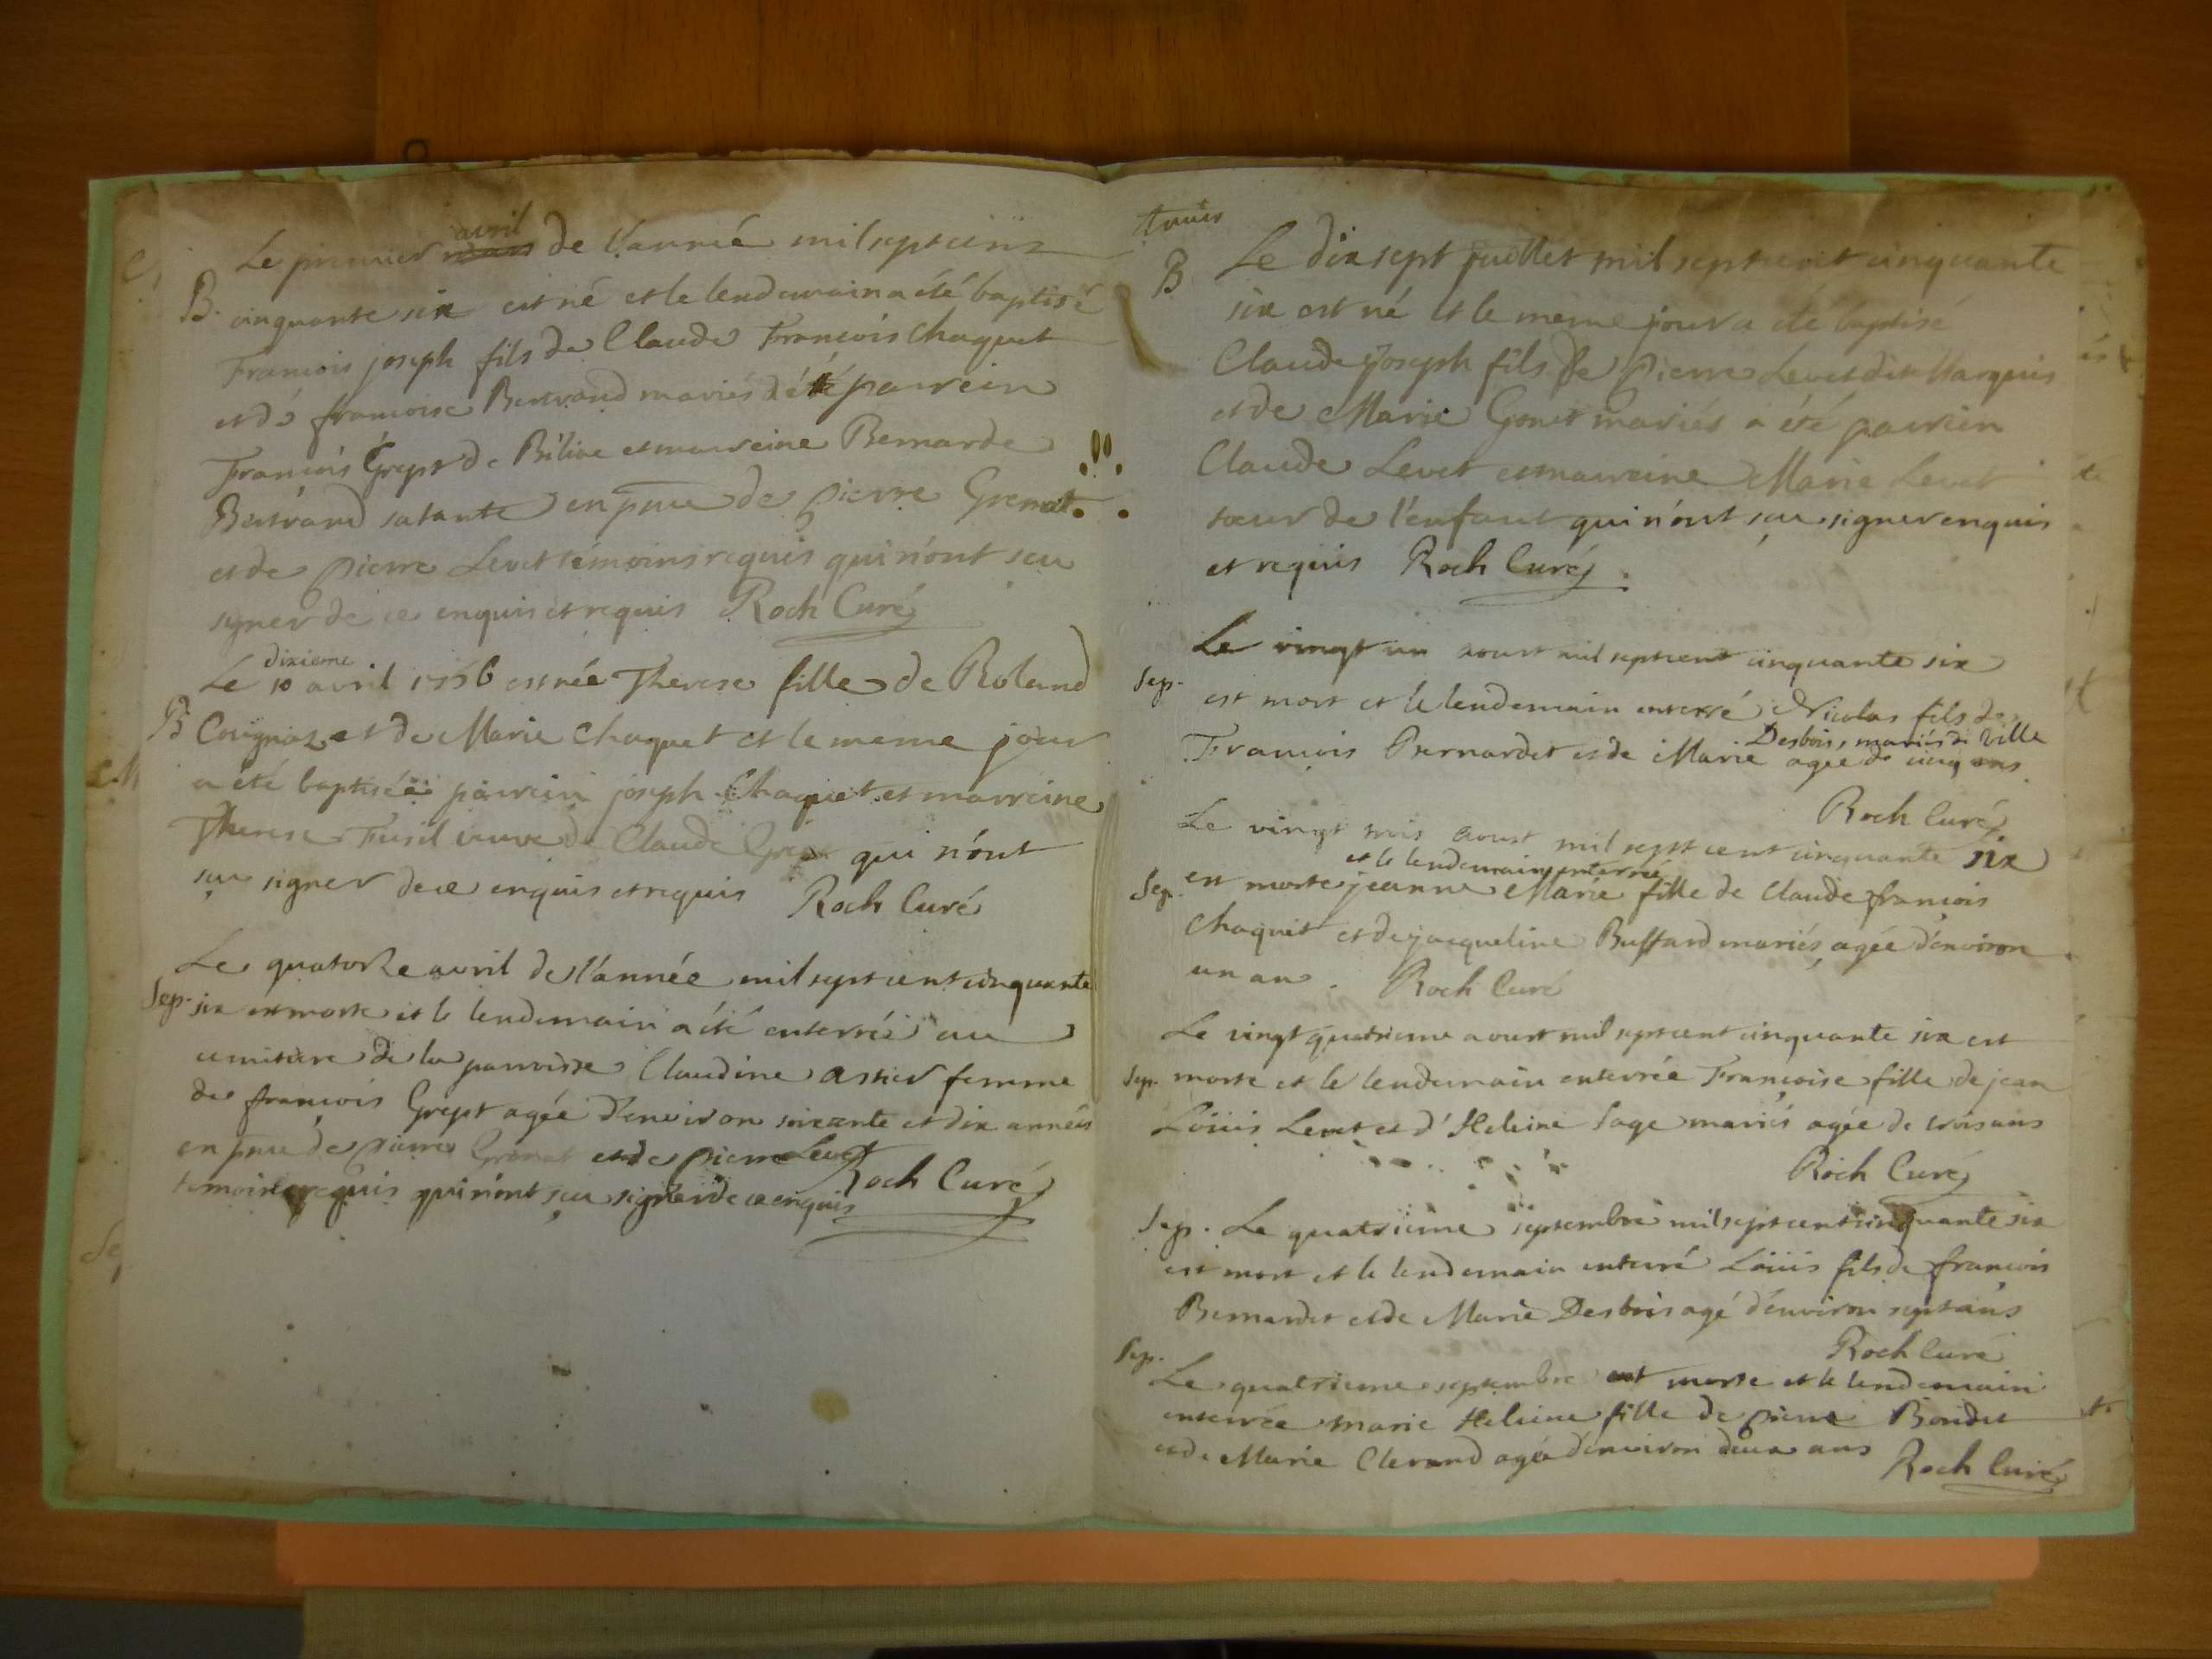 Le premier avril de l'année mil sept cens
B. cinquante six est né et le lendemain a été baptisé
Francois joseph fils de Claude François Chaquet
et dé francoise Bertrand mariés à été parrein
François Grept de Bélive et marreine Bernarde
Bertrand sa tante en pnce de pierre Grenat
et de pierre Levet témoins requis qui n'ont sçu
signer de ce enquis et requis Roch Curé
dixieme
Le 10 avril 1756 est née Therese fille de Roland
B Coignaz et de Marie Chaquet et le meme jour
a été baptisée parrein joseph Chaquet et marreine
Therese Fusil veuve de Claude Grept qui n'ont
sçu signer de ce enquis et requis Roch Curé
Le quatorze avril de l'année mil sept cent cinquante
Sep. six est morte et le lendemain a été enterrée au
cimitiere de la parroisse Claudine astier femme
de françois Grept agée d'environ soixante et dix années
en pnce de pierre Grenat et de pierre Levet
temoins requis qui n'ont sçu signer de ce enquis Roch Curé
trois
B Le dix sept juillet mil sept cent cinquante
six est né et le meme jour a été baptisé
Claude Joseph fils de pierre Levet dit Marquis
et de Marie Gonet mariés a été parrein
Claude Levet et marreine Marie Levet
sœur de l'enfant qui n'ont sçu signer enquis
et requis Roch Curé
Le vingt un aoust mil sept cent cinquante six
Sep. est mort et le lendemain enterré Nicolas fils de
Desbois, mariés de Ville
François Bernardet et de Marie agée de cinq ans
Roch Curé
Le vingt trois aoust mil sept cent cinquante six
et le lendemain enterrée
Sep. est morte jeanne Marie fille de Claude françois
Chaquet et de jacqueline Buffard mariés, agée d'environ
un an. Roch Curé
Le vingt quatrieme aoust mil sept cent cinquante six est
Sep. morte et le lendemain enterrée Françoise fille de jean
Loüis Levet et d'Heleine Sage mariés agée de trois ans
Roch Curé
Sep. Le quatrieme septembre mil sept cent cinquante six
est mort et le lendemain enterré Loüis fils de françois
Bernardet et de Marie Desbois agé d'environ sept ans
Roch Curé
Sep.
Le quatrieme septembre est morte et le lendemain
enterrée marie Heleine fille de pierre Bondet
et de Marie Clerand agée d'environ deux ans Roch Curé